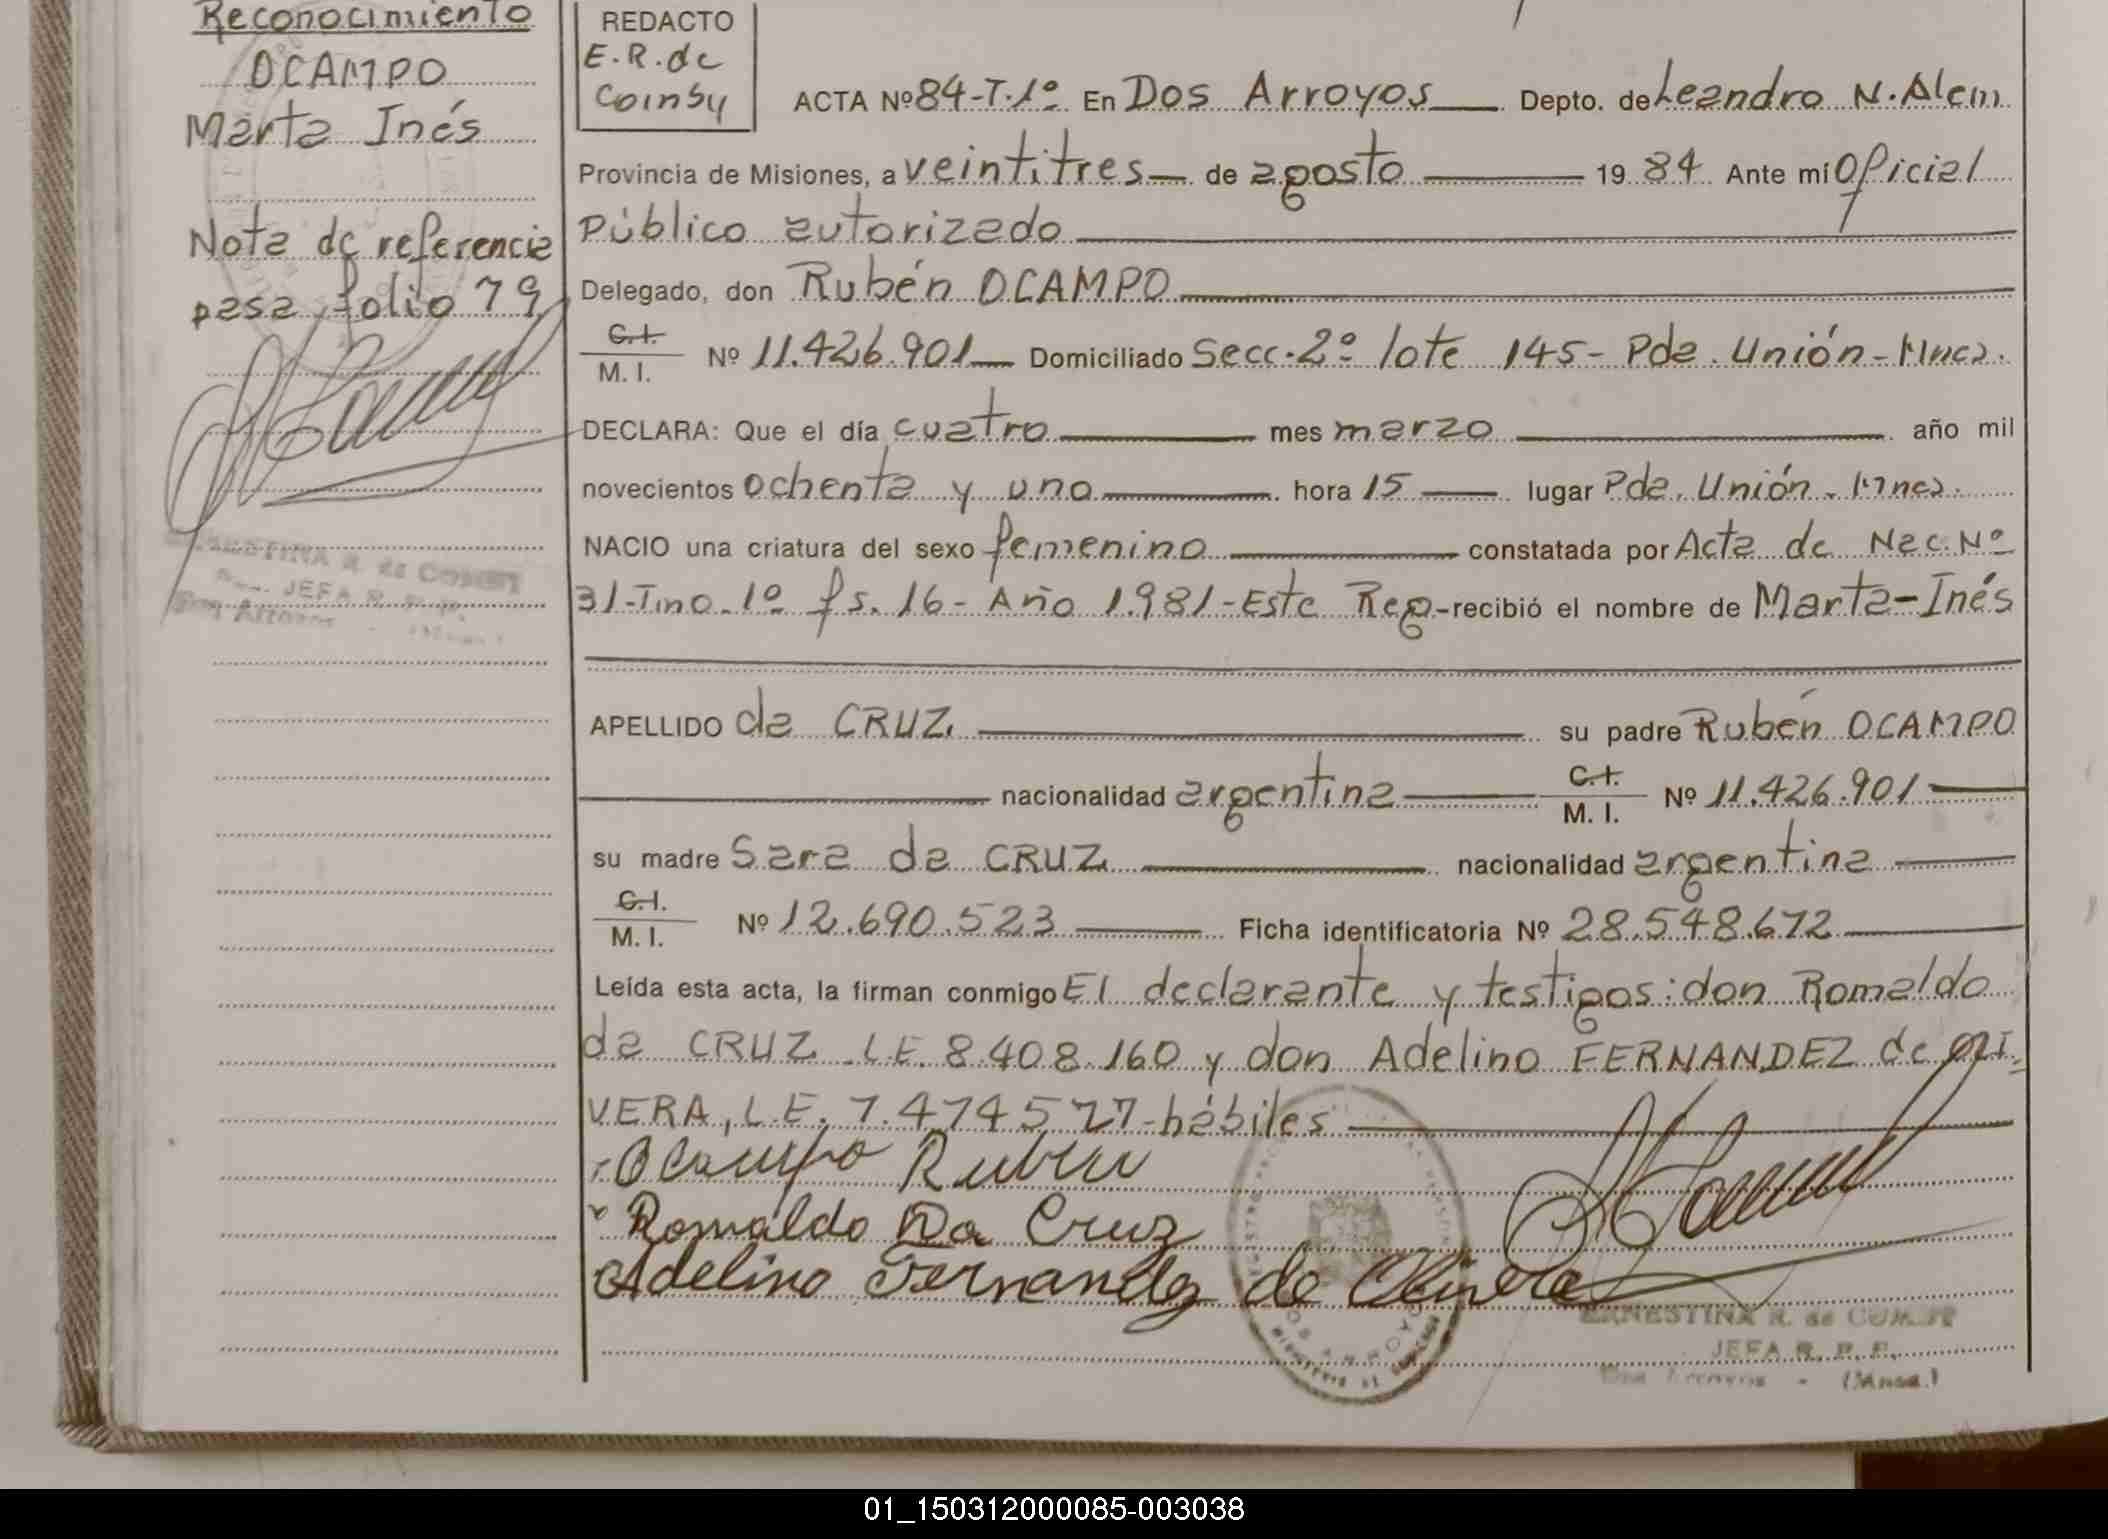 Reconocimiento
OCAMPO
Marta Inés
Nota de referencia
pasa folio 79
REDACTO
E.R. de
Coinsy
ACTA Nº 84-T.1º En Dos Arroyos Depto. de Leandro N. Alem
Provincia de Misiones, a veintitres de agosto 19 84 Ante mí Oficial
Público autorizado
Delegado, don Rubén OCAMPO
C.I.
M. I. Nº 11.426.901 Domiciliado Secc. 2º lote 145 - Pda. Unión - Mnes.
DECLARA: Que el día cuatro mes marzo año mil
novecientos ochenta y uno hora 15 lugar Pda. Unión - Mnes.
NACIO una criatura del sexo femenino constatada por Acta de Nac. Nº
31-Tmo. 1º fs. 16 - Año 1.981 - Este Reg - recibió el nombre de Marta-Inés
APELLIDO da CRUZ su padre Rubén OCAMPO
nacionalidad argentina C.I.
M. I. Nº 11.426.901
su madre Sara da CRUZ nacionalidad argentina
C.I.
M. I. Nº 12.690.523 Ficha identificatoria Nº 28.548.672
Leída esta acta, la firman conmigo El declarante y testigos: don Romaldo
da CRUZ L.E. 8.408.160 y don Adelino FERNANDEZ de
VERA, L.E. 7.474577-hábiles
Ocampo Ruben
Romaldo Da Cruz
Adelino Fernandez de Olivera
ERNESTINA R. de
JEFA R. P. P.
Dos Arroyos - (Mnes.)
01_150312000085-003038